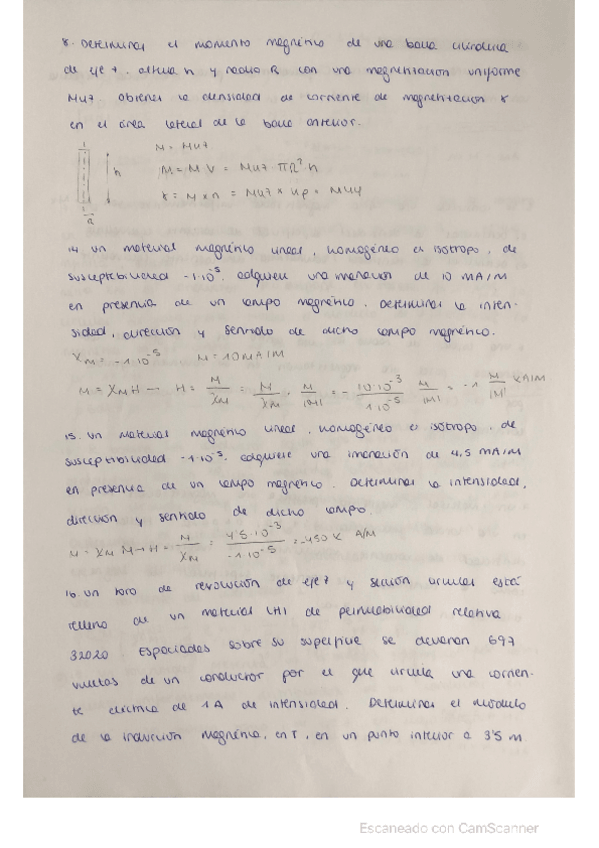 8. Determinar el momento magnético de una barra cilíndrica
de eje z, altura h y radio R con una magnetización uniforme
Muz. Obtener la densidad de corriente de magnetización K
en el área lateral de la barra anterior.
M = Muz
h
M = M V = Muz πR² h
K = M × n = Muz × uρ = Muφ
R
14. Un material magnético lineal, homogéneo e isótropo, de
susceptibilidad -1·10⁻⁵. adquiere una imanación de 10 mA/m
en presencia de un campo magnético. Determinar la inten-
sidad, dirección y sentido de dicho campo magnético.
χM = -1·10⁻⁵ M = 10 mA/M
M = χM H → H = M/χM = M/χM · M/|M| = - 10·10⁻³/1·10⁻⁵ M/|M| = -1 M/|M| KA/M
15. Un material magnético lineal, homogéneo e isótropo, de
susceptibilidad -1·10⁻⁵. adquiere una imanación de 4,5 mA/m
en presencia de un campo magnético. Determinar la intensidad,
dirección y sentido de dicho campo.
M = χM H → H = M/χM = 4'5·10⁻³/-1·10⁻⁵ = -450 A/M
16. Un toro de revolución de eje z y sección circular está
relleno de un material LHI de permeabilidad relativa
32020. Espaciadas sobre su superficie se devanan 697
vueltas de un conductor por el que circula una corrien-
te eléctrica de 1A de intensidad. Determinar el módulo
de la inducción magnética, en T, en un punto interior a 3'5 m.
Escaneado con CamScanner